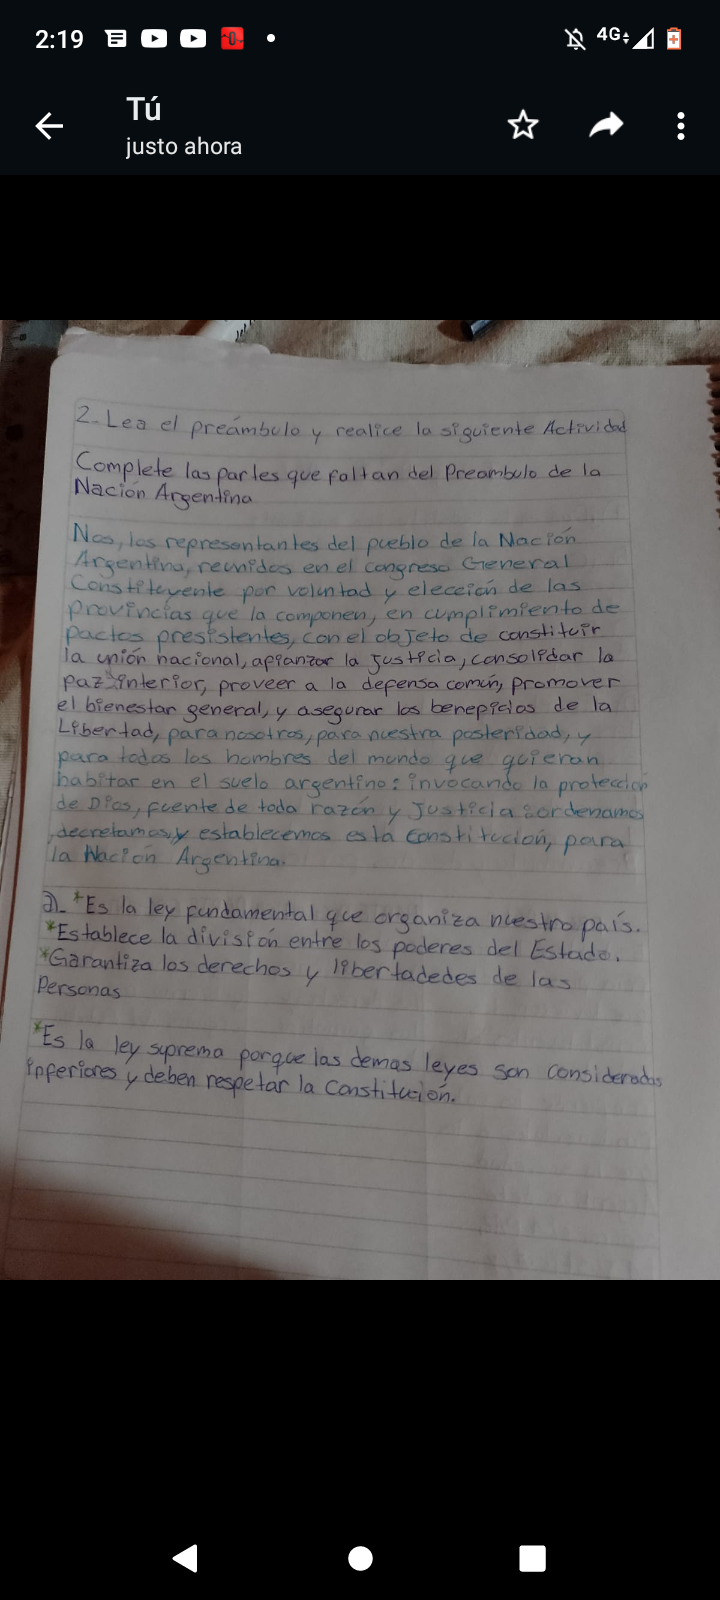 2:19
4G
Tú
justo ahora
2-Lea el preámbulo y realice la siguiente Actividad
Complete las partes que faltan del Preambulo de la
Nación Argentina
Nos, los representantes del pueblo de la Nación
Argentina, reunidos en el congreso General
Constituyente por voluntad y elección de las
provincias que la componen, en cumplimiento de
pactos presistentes, con el objeto de constituir
la unión nacional, afianzar la justicia, consolidar la
paz interior, proveer a la defensa común, promover
el bienestar general, y asegurar los beneficios de la
Libertad, para nosotros, para nuestra posteridad, y
para todos los hombres del mundo que quieran
habitar en el suelo argentino: invocando la protección
de Dios, fuente de toda razón y justicia: ordenamos
,decretamos,y establecemos esta Constitución, para
la Nación Argentina.
a)- *Es la ley fundamental que organiza nuestro país.
*Establece la división entre los poderes del Estado.
*Garantiza los derechos y libertadedes de las
Personas
*Es la ley suprema porque las demas leyes son consideradas
inferiores y deben respetar la Constitución.